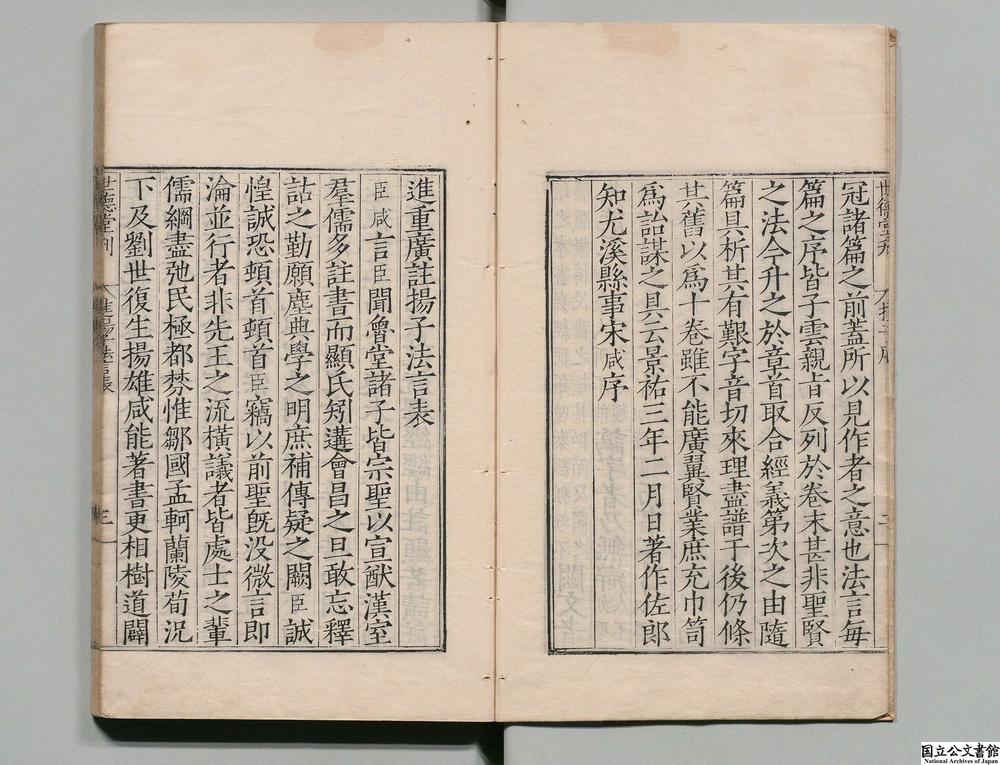 冠諸篇之前蓋所以見作者之意也法言每
篇之序皆子雲親旨反列於卷末甚非聖賢
之法今升之於章首取合經義第次之由隨
篇具析其有艱字音切來理盡譜于後仍條
其舊以爲十卷雖不能廣翼賢業庶充巾笥
爲詒謀之具云景祐三年二月日著作佐郎
知尤溪縣事宋咸序
進重廣註揚子法言表
臣咸言臣聞魯堂諸子皆宗聖以宣猷漢室
羣儒多註書而顯氏矧遘會昌之旦敢忘釋
詁之勤願塵典學之明庶補傳疑之闕臣誠
惶誠恐頓首頓首臣竊以前聖旣没微言即
淪並行者非先王之流橫議者皆處士之輩
儒綱盡弛民極都棼惟鄒國孟軻蘭陵荀況
下及劉世復生揚雄咸能著書更相樹道闢
世德堂刊
三
国立公文書館
National Archives of Japan